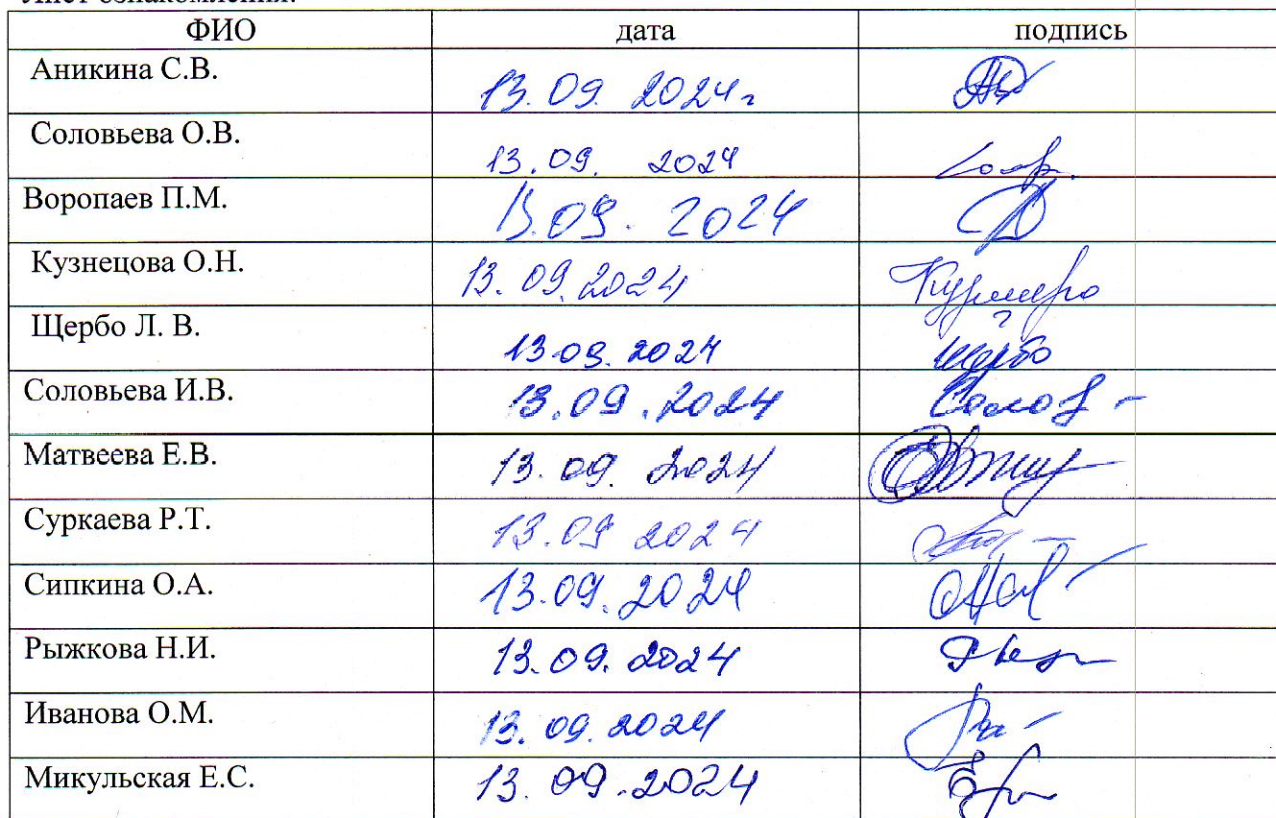 Лист ознакомления:
ФИО дата подпись
Аникина С.В. 13.09.2024г
Соловьева О.В. 13.09.2024
Воропаев П.М. 13.09.2024
Кузнецова О.Н. 13.09.2024
Щербо Л. В. 13.09.2024 Щербо
Соловьева И.В. 13.09.2024
Матвеева Е.В. 13.09.2024
Суркаева Р.Т. 13.09 2024
Сипкина О.А. 13.09.2024
Рыжкова Н.И. 13.09.2024
Иванова О.М. 13.09.2024
Микульская Е.С. 13.09.2024